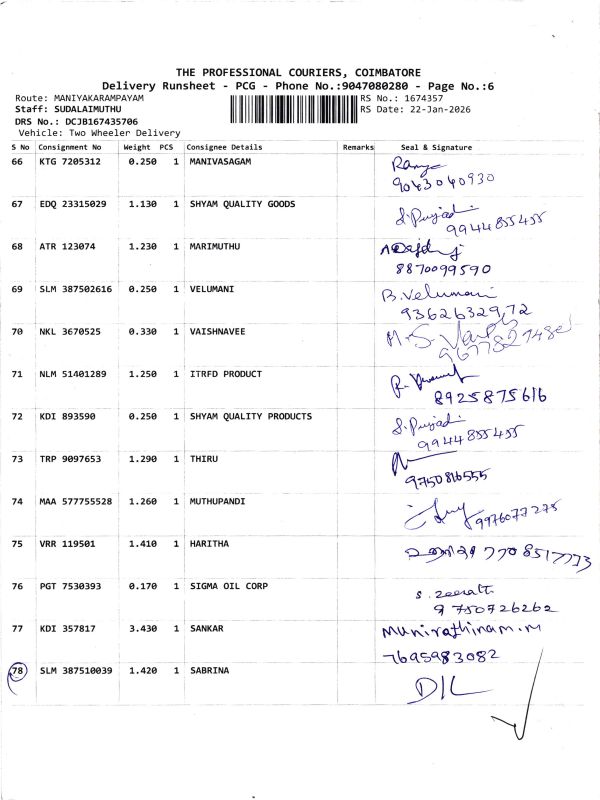 THE PROFESSIONAL COURIERS, COIMBATORE
Delivery Runsheet - PCG - Phone No.:9047080280 - Page No.:6
Route: MANIYAKARAMPAYAM
RS No.: 1674357
Staff: SUDALAIMUTHU
RS Date: 22-Jan-2026
DRS No.: DCJB167435706
Vehicle: Two Wheeler Delivery
S No Consignment No Weight PCS Consignee Details Remarks Seal & Signature
66 KTG 7205312 0.250 1 MANIVASAGAM
9043040930
67 EDQ 23315029 1.130 1 SHYAM QUALITY GOODS
9944855455
68 ATR 123074 1.230 1 MARIMUTHU
8870099590
69 SLM 387502616 0.250 1 VELUMANI B.Velumani
9362632972
70 NKL 3670525 0.330 1 VAISHNAVEE
71 NLM 51401289 1.250 1 ITRFD PRODUCT
8925875616
72 KDI 893590 0.250 1 SHYAM QUALITY PRODUCTS
9944855455
73 TRP 9097653 1.290 1 THIRU
9750816555
74 MAA 577755528 1.260 1 MUTHUPANDI
9976077275
75 VRR 119501 1.410 1 HARITHA 7708517773
76 PGT 7530393 0.170 1 SIGMA OIL CORP
9750726262
77 KDI 357817 3.430 1 SANKAR Munirathinam.M
7695983082
78 SLM 387510039 1.420 1 SABRINA D/L